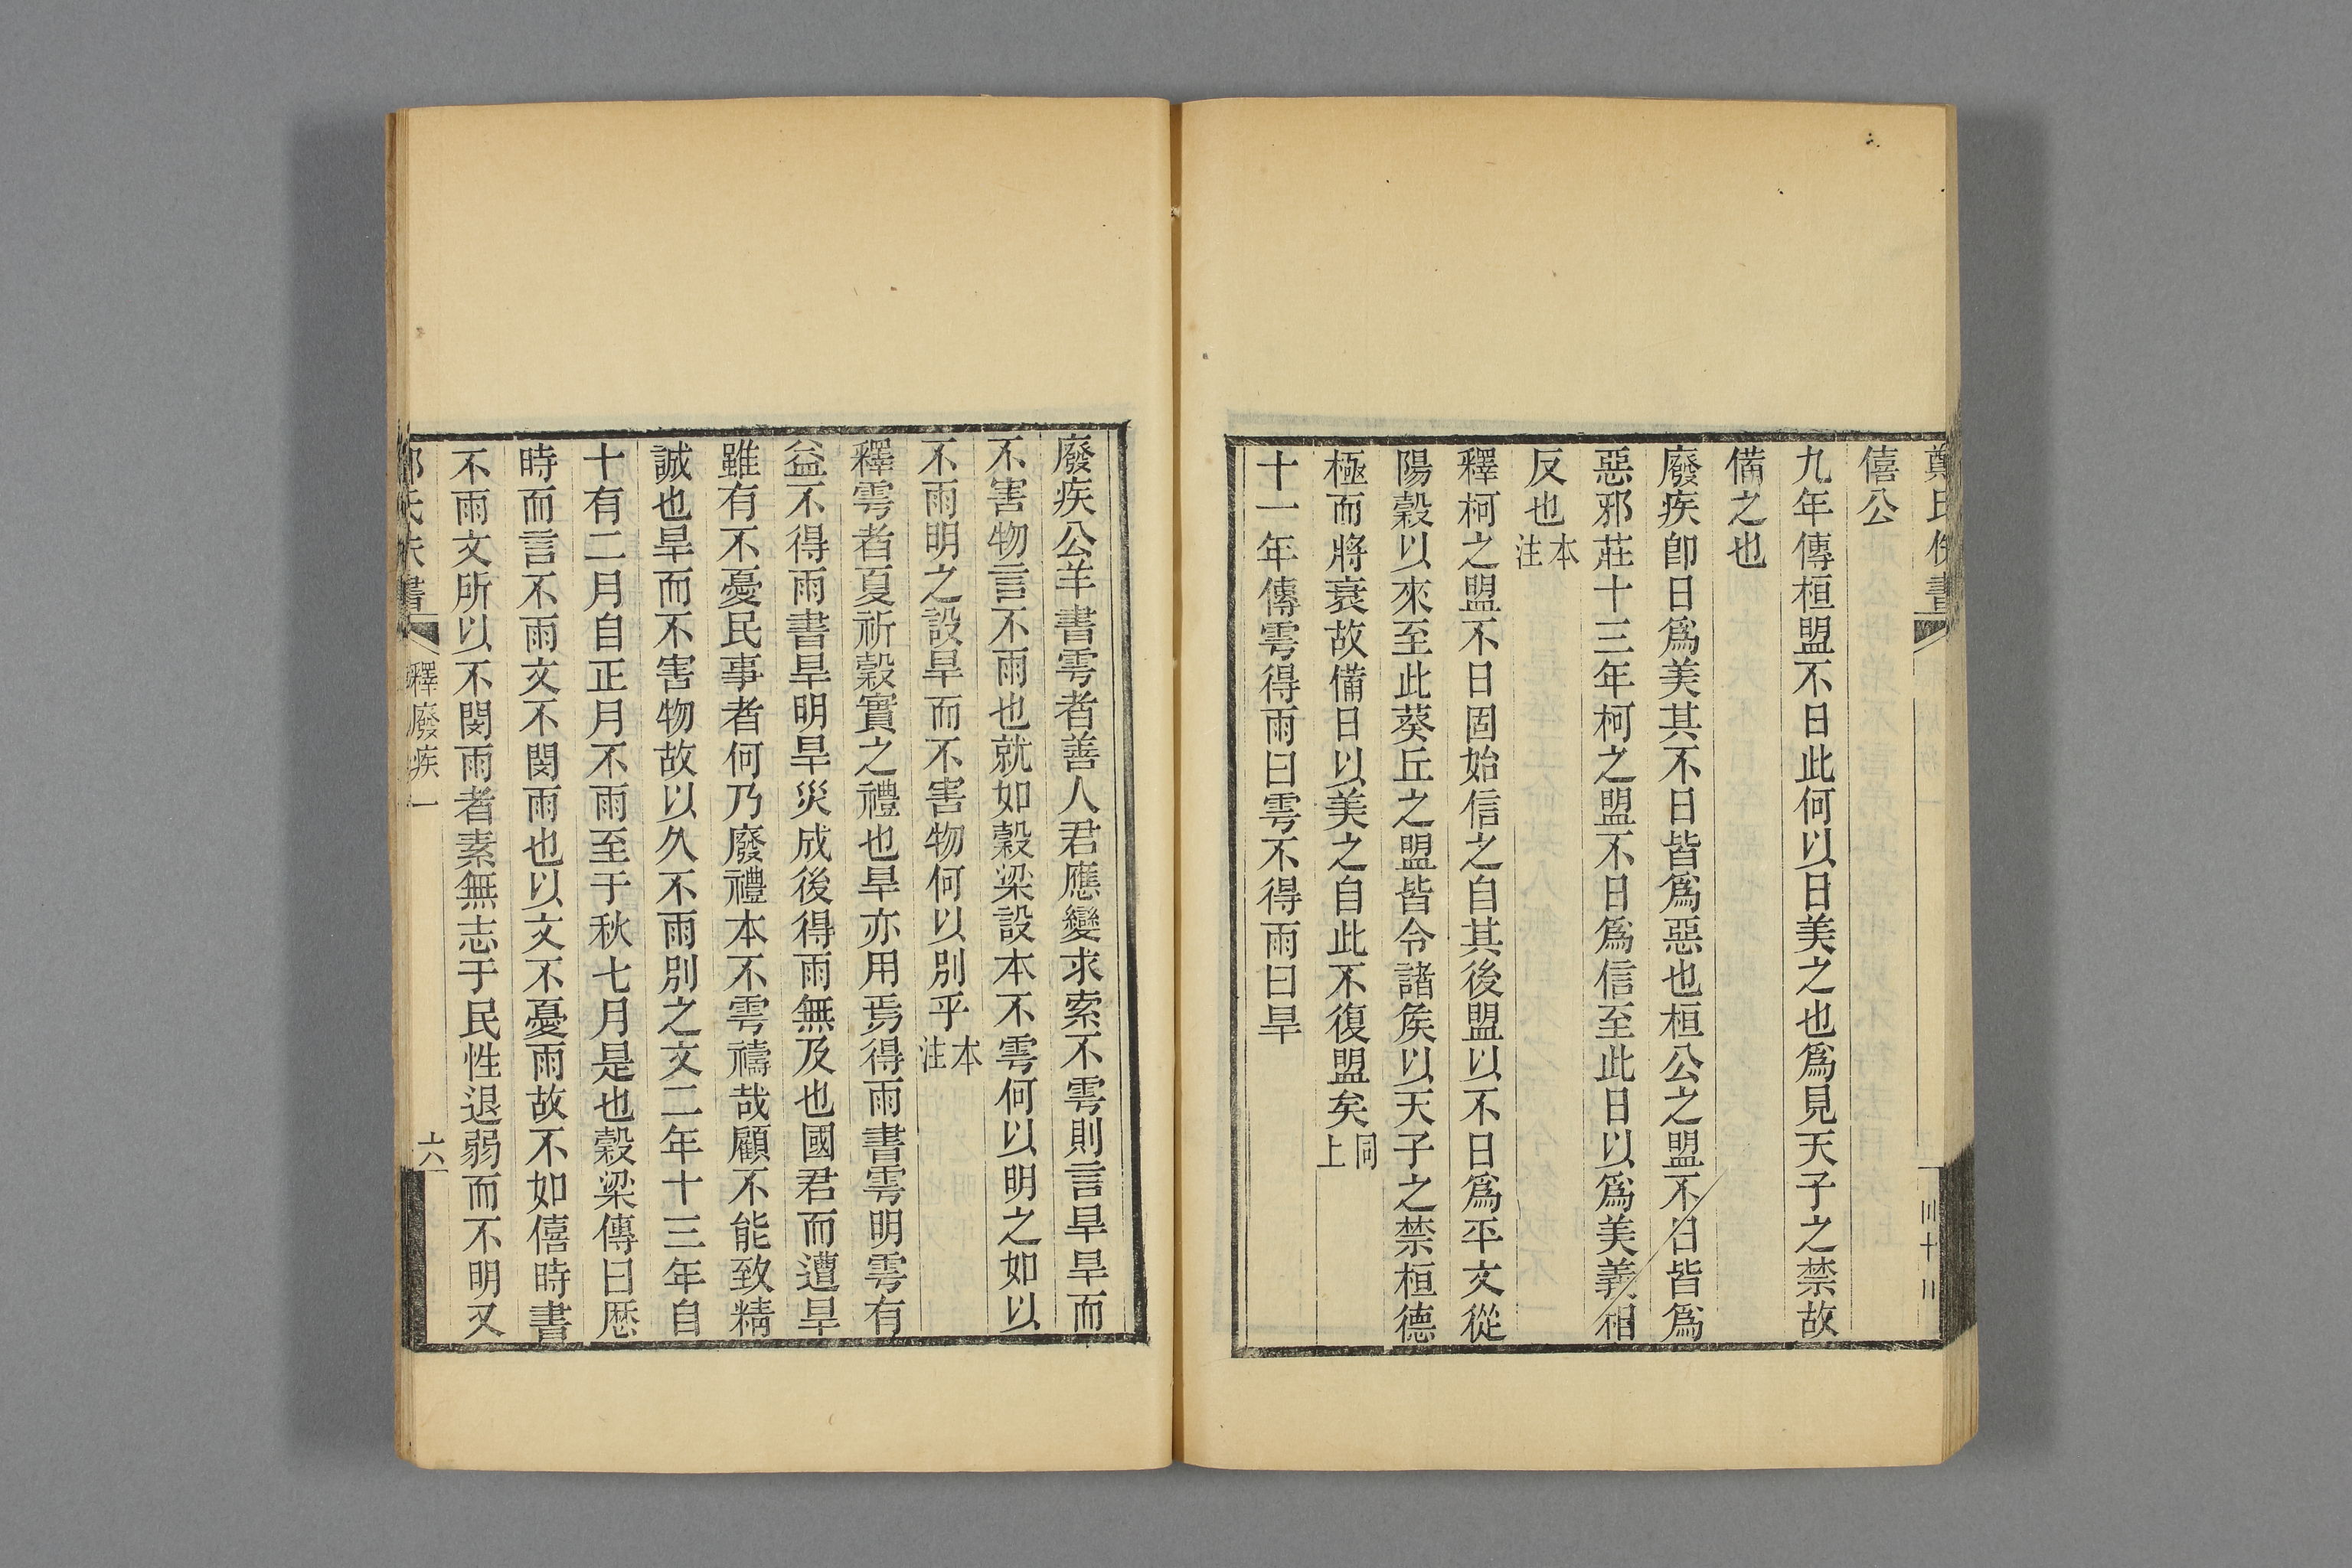 僖公
九年傳桓盟不日此何以日美之也爲見天子之禁故
備之也
廢疾卽日爲美其不日皆爲惡也桓公之盟不日皆爲
惡邪莊十三年柯之盟不日爲信至此日以爲美義相
反也本注
釋柯之盟不日固始信之自其後盟以不日爲平文從
陽穀以來至此葵丘之盟皆令諸矦以天子之禁桓德
極而將衰故備日以美之自此不復盟矣同上
十一年傳雩得雨曰雩不得雨曰旱
廢疾公羊書雩者善人君應變求索不雩則言旱旱而
不害物言不雨也就如穀梁設本不雩何以明之如以
不雨明之設旱而不害物何以別乎本注
釋雩者夏祈穀實之禮也旱亦用焉得雨書雩明雩有
益不得雨書旱明旱災成後得雨無及也國君而遭旱
雖有不憂民事者何乃廢禮本不雩禱哉顧不能致精
誠也旱而不害物故以久不雨別之文二年十三年自
十有二月自正月不雨至于秋七月是也穀梁傳曰歷
時而言不雨文不閔雨也以文不憂雨故不如僖時書
不雨文所以不閔雨者素無志于民性退弱而不明又
釋廢疾一
六